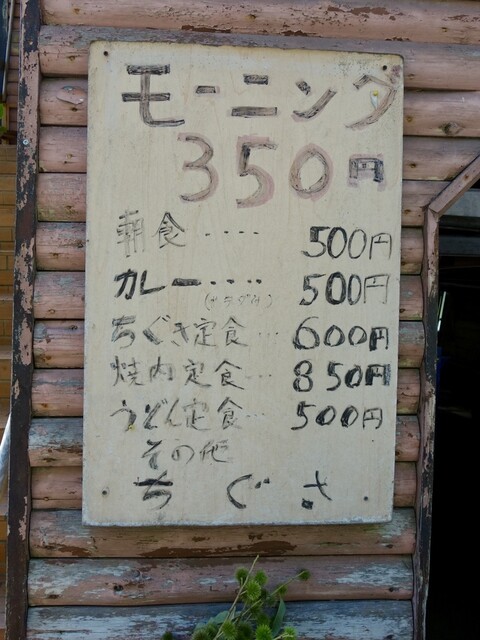 モーニング
350円
朝食‥‥500円
カレー‥‥500円
(サラダ付)
ちぐさ定食‥600円
焼肉定食‥850円
うどん定食‥500円
その他
ちぐさ